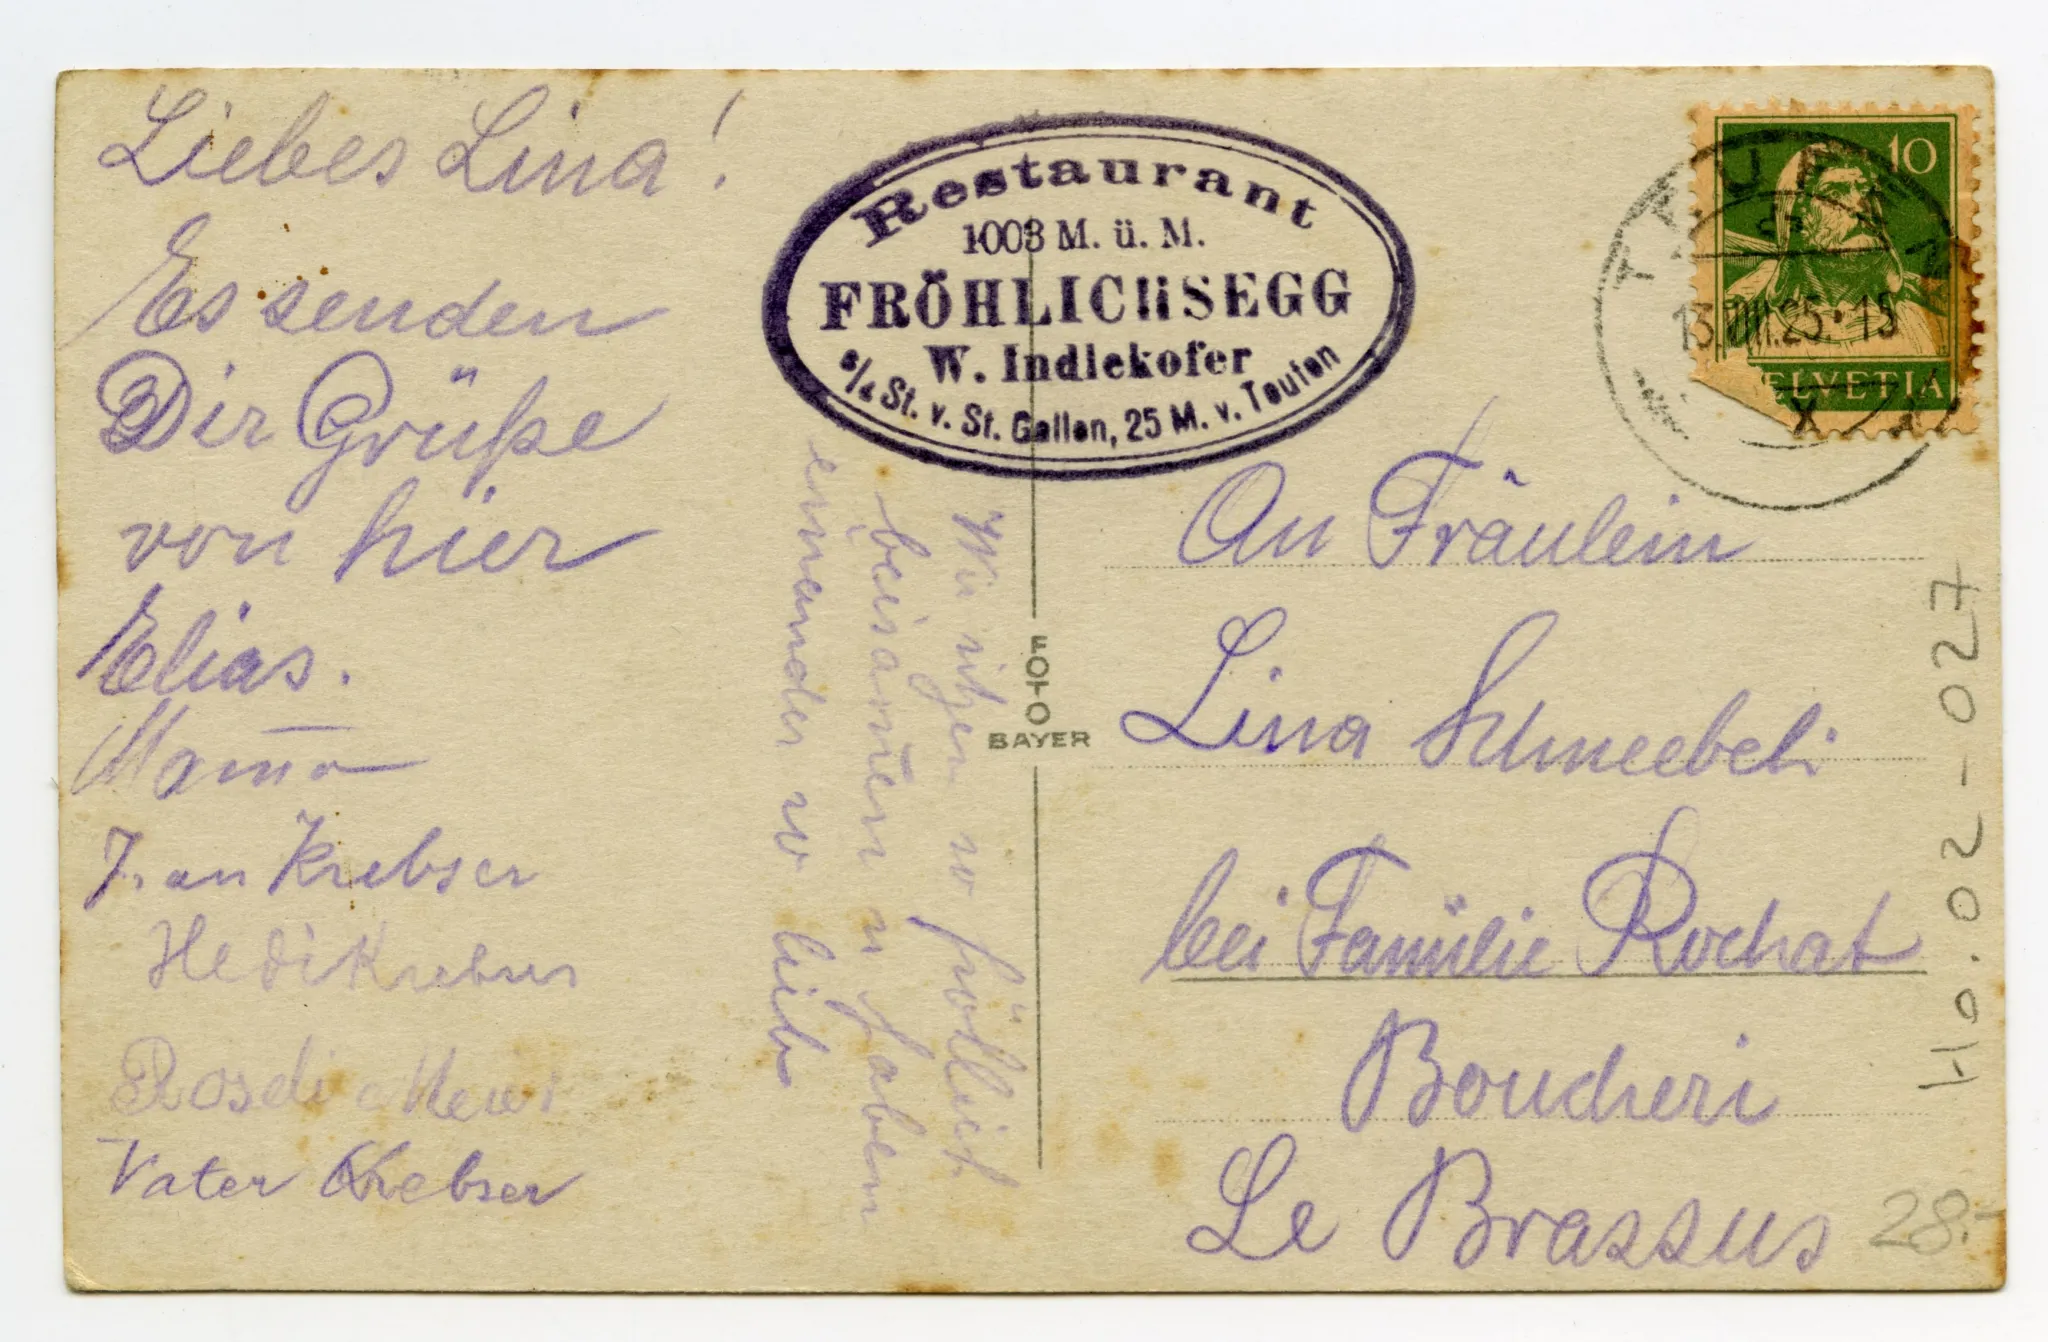 Liebes Lina!
Es senden
Dir Grüße
von hier
Elias.
Mama
Krebser
Hedi Krebser
Rosdi
Vater Krebser
Wir sitzen so fröhlich
beisammen u haben
einander so lieb
Restaurant
1003 M. ü. M.
FRÖHLICHSEGG
W. Indlekofer
5/4 St. v. St. Gallen, 25 M. v. Teufen
FOTO
BAYER
10
HELVETIA
TEUFEN
13.VIII.25.-15
An Fräulein
Lina Schneebeli
bei Familie Rochat
Boucheri
Le Brassus
Ho.02-027
28.-